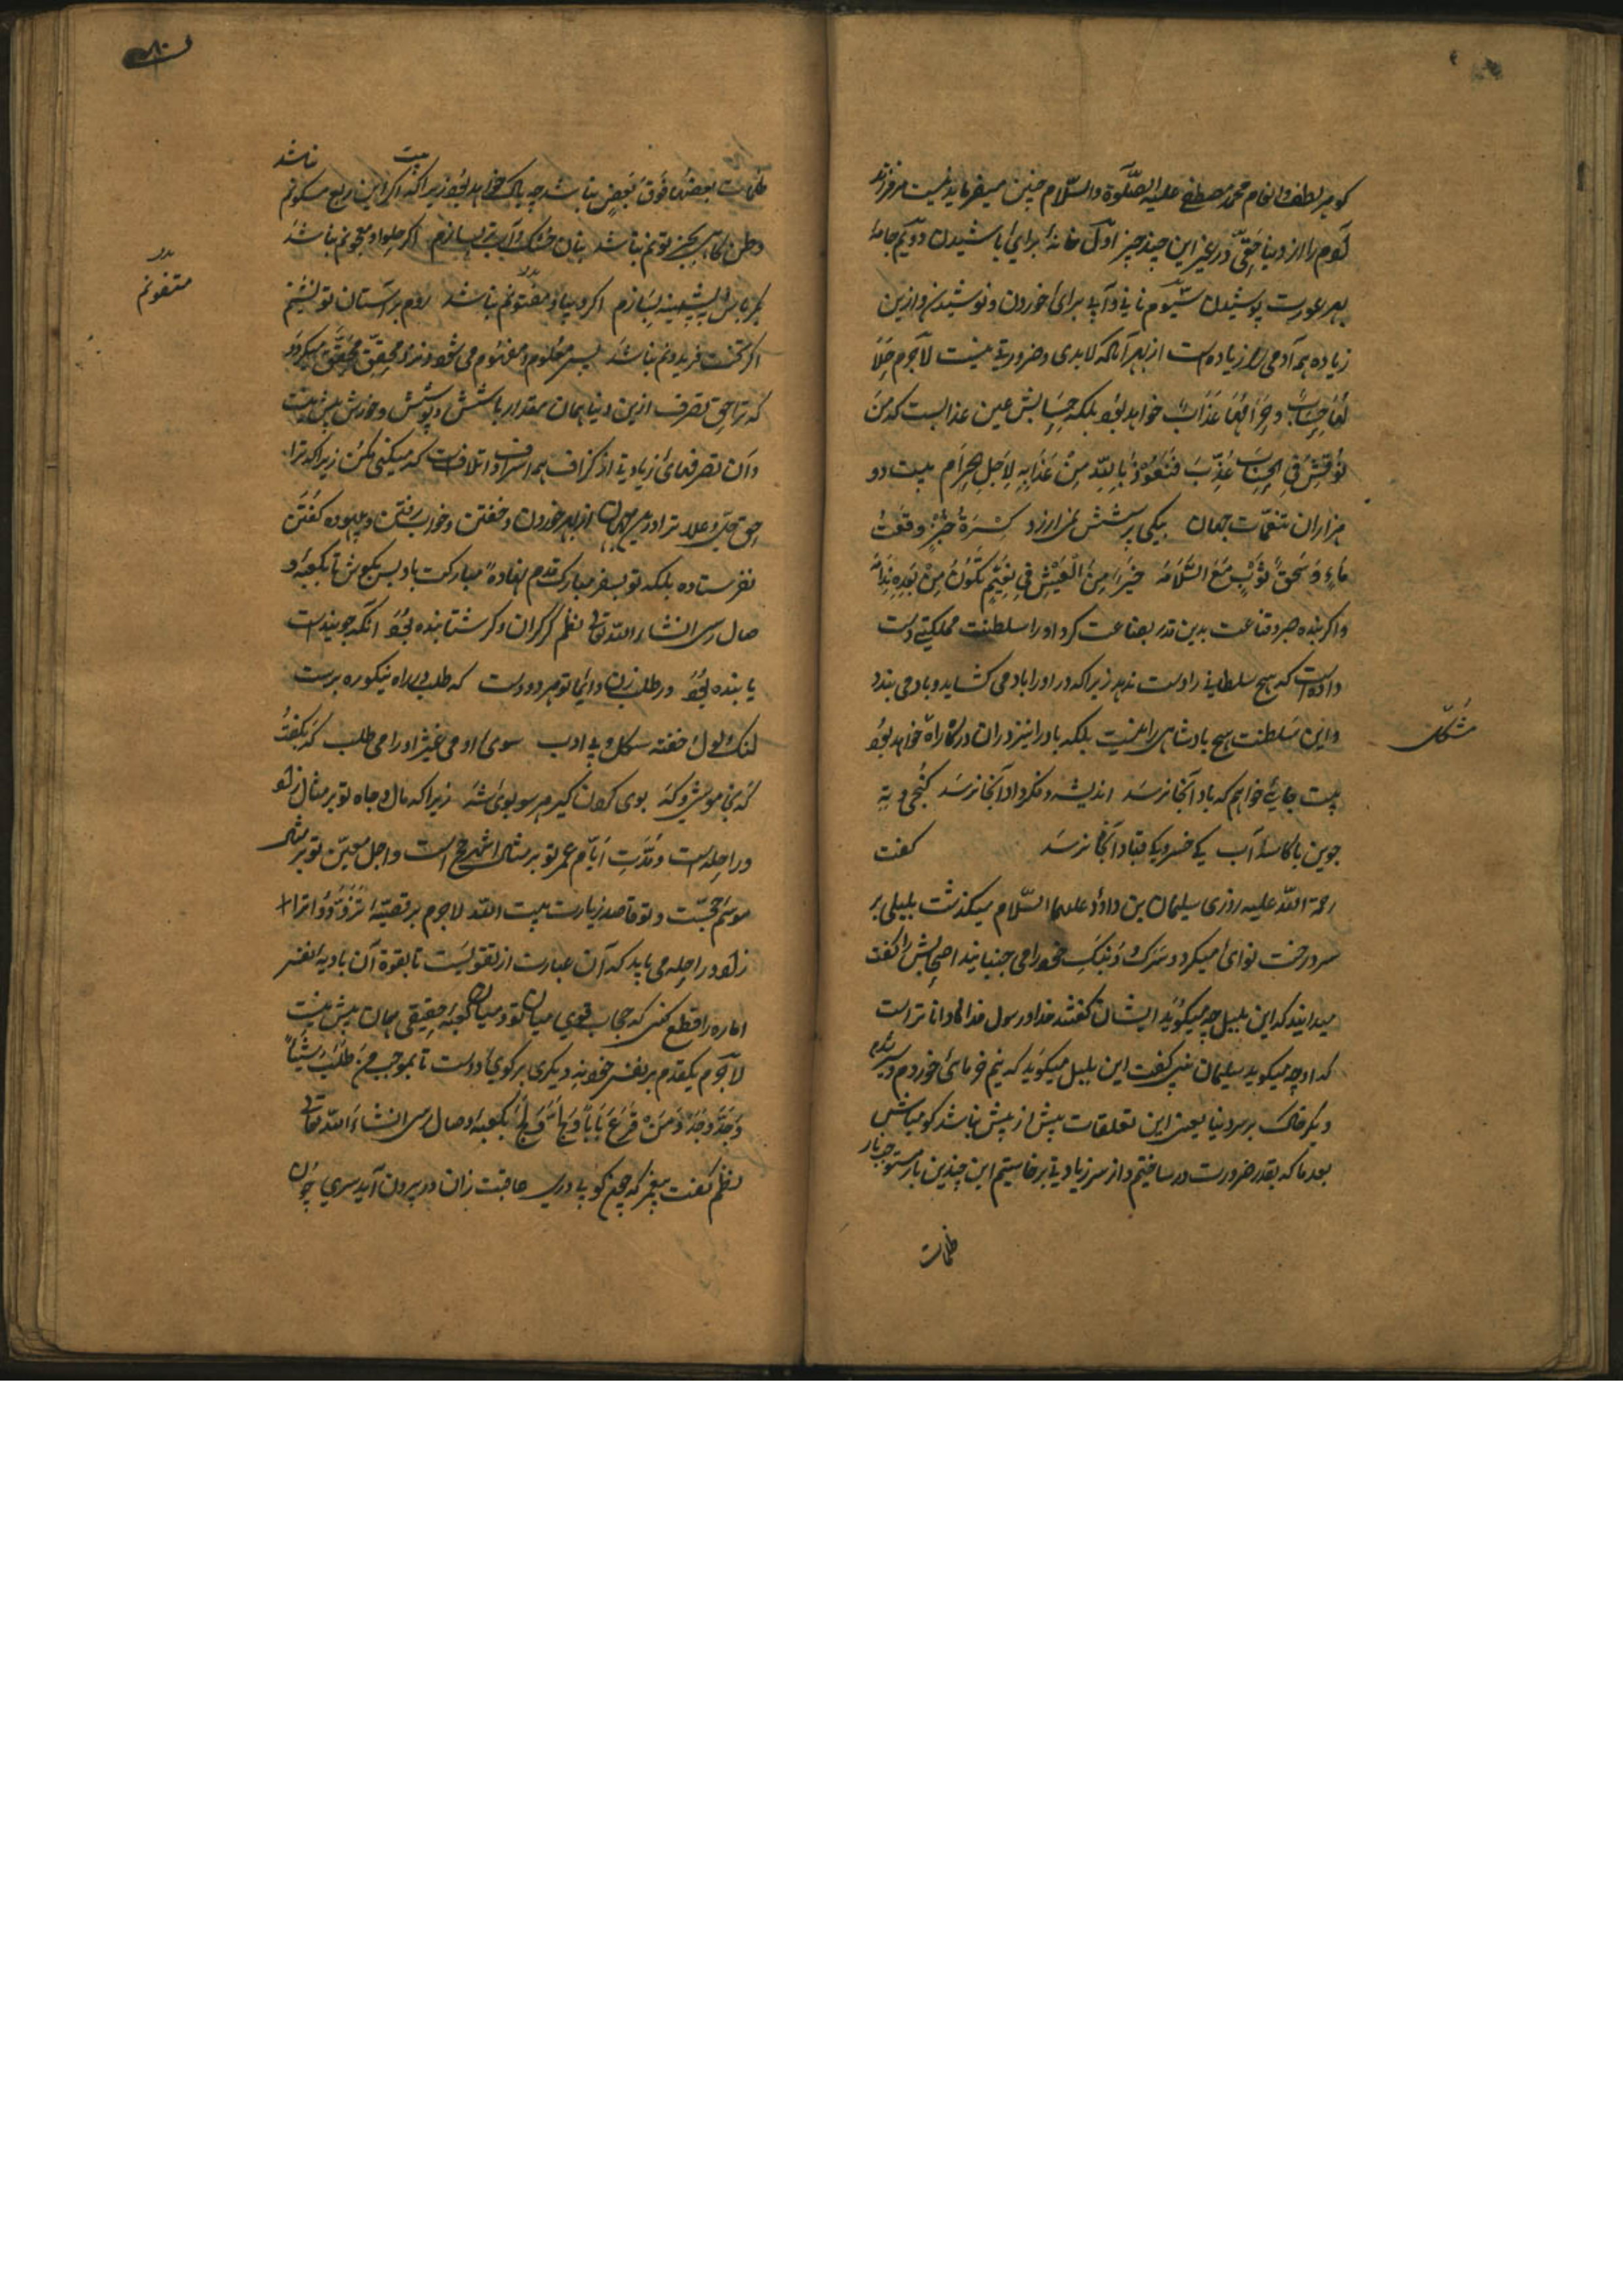 کوهر لطف و انعام محمد مصطفی علیه الصلوة والسلام چنین میفرماید نیست مر فرزند
آدم را از دنیا حقی در غیر این چند چیز اول خانهٔ برای باشیدن دویم جامهٔ
بهر عورت پوشیدن سیوم نانی و آبی برای خوردن و نوشیدن و ازین
زیاده همه آدمی را زیاده است از بهر آنکه لابدی و ضروریه نیست لاجرم حلا
لها حساب و حرامها عذاب خواهد بود بلکه حسابش عین عذابست که من
نوقش فی الحساب عذب فنعوذ بالله من عذابه لاجل حرام بیت دو
هزاران تنعمات جهان بیکی پرسشش نمی ارزد کسرة خبز و قعب
ماء و سحق ثوب مع السلامه خیر من العیش فی نعیم تکون من بعده ندامه
و اگر بنده صبر و قناعت بدین قدر بضاعت کرد او را سلطنت مملکتی دست
داده است که هیچ سلطانی را دست ندهد زیراکه در او را باد می کشاید و باد می بندد
و این سلطنت هیچ بادشاهی را نیست بلکه باد را نیز در آن درگاه راه نخواهد بود
مشکل
بیت جایی خواهم که باد آنجا نرسد اندیشه و فکر داد آنجا نرسد کنجی و نه
جوین با کاسهٔ آب کیخسرو و کیقباد آنجا نرسد گفت
رحمة الله علیه روزی سلیمان بن داود علیهما السلام میگذشت بلبلی بر
سر درخت نوای میکرد و سرک و دنبک خود را می جنبانید اصحابش را گفت
میدانید که این بلبل چه میگوید ایشان گفتند خدا و رسول خدا دانا تر است
که او چه میگوید سلیمان نبی گفت این بلبل میگوید که نیم خرمای خوردم و سیر شدم
دیگر خاک بر سر دنیا یعنی این تعلقات بیش از پیش نباشد کو مباش
بعد ما که بقدر ضرورت در ساختیم و از سر زیادتی برخاستیم این چندین بار مستوجب بار
ظلمات
ظلمات بعضها فوق بعض نباشد چه باک خواهد بود زیراکه بیت اگر این ربع مسکونم نباشد
وطن در کنج بی توتم نباشد بنان خشک و آب تر بسازم اگر حلوا و معجونم نباشد
بکرباس و پشمینه بسازم اگر دیبا و مفتونم نباشد روم بر آستان تو نشینم
متفونم
اگر تخت فریدونم نباشد پس معلوم و مفهوم می شود و نزد محقق محقق میگردد
که ترا حق تصرف ازین دنیا همان مقدار باشش و پوشش و خورش بیش نیست
و آن تصرفهای زیادتی از گزاف همه اسراف و اتلافست که میکنی مکن زیراکه ترا
حق جل و علا ترا درین جهان از بهر خوردن و خفتن و خواب رفتن و بیهوده گفتن
نفرستاده بلکه تو بسفر مبارک قدم نهادهٔ مبارکت باد پس بکوش تا بکعبهٔ و
صال رسی انشاء الله تعالی نظم گر گران و گر شتابنده بود آنکه جوینده است
یابنده بود در طلب زن دایما تو هر دو دست که طلب در راه نیکو رهبرست
لنگ و لوک و خفته شکل و بی ادب سوی او می غیژ او را می طلب که بگفت
که بخاموشی و که بوی کردن گیر هر سو بوی شه زیراکه مال و جاه تو بر مثال زاد
و راحله است و مدت ایام عمر تو بر مثال اشهر حج است و اجل معین تو بر مثال
موسم حجست و تو قاصد زیارت بیت الله لاجرم بر قضیهٔ تزودوا ترا
زاد و راحله می باید که آن عبارت از تقویست تا بقوة آن بادیهٔ نفس
اماره را قطع کنی که حجاب قوی میان تو و میان کعبهٔ حقیقی همان بیش نیست
لاجرم یکقدم بر نفس خود نه دیگری بر کوی دوست تا بموجب من طلب شیئا
وجد وجد و من قرع بابا و لج و لج بکعبهٔ وصال رسی انشاء الله تعالی
نظم گفت پیغمبر که چون کوبی دری عاقبت زان در برون آید سری چون